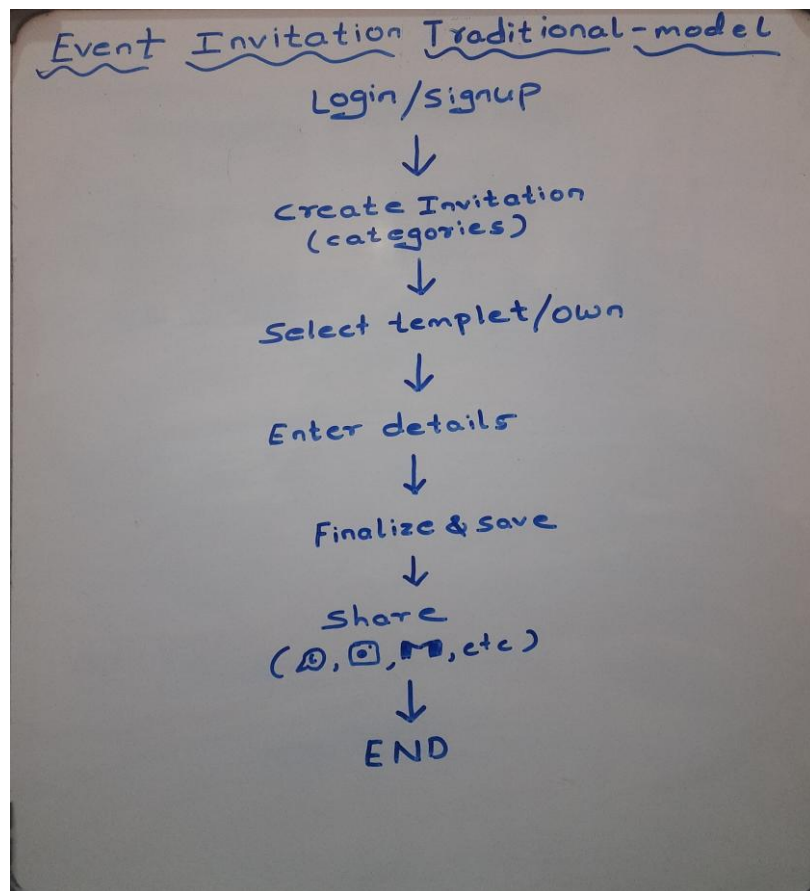 Event Invitation Traditional-model
Login/signup
↓
Create Invitation
(categories)
↓
Select templet/own
↓
Enter details
↓
Finalize & save
↓
Share
( , , , etc)
↓
END